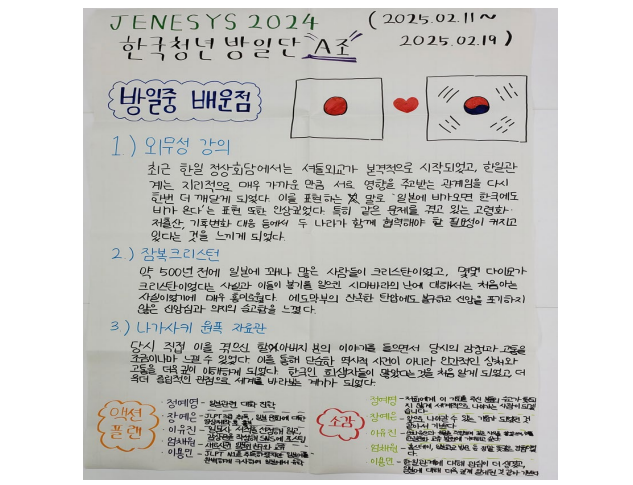 JENESYS 2024 (2025.02.11~
한국청년 방일단 "A조" 2025.02.19)
방일중 배운점
1) 외무성 강의
최근 한일 정상회담에서는 셔틀외교가 본격적으로 시작되었고, 한일관
계는 지리적으로 매우 가까운 만큼 서로 영향을 주고받는 관계임을 다시
한번 더 깨닫게 되었다. 이를 표현하는 말로 '일본에 비가오면 한국에도
비가 온다'는 표현 또한 인상깊었다. 특히 같은 문제를 겪고 있는 고령화·
저출산, 기후변화 대응 등에서 두 나라가 함께 협력해야 할 필요성이 커지고
있다는 것을 느끼게 되었다.
2) 잠복크리스턴
약 500년 전에 일본에 꽤나 많은 사람들이 크리스탄이었고, 몇몇 다이묘가
크리스탄이었다는 사실과 이들이 봉기를 일으킨 시마바라의 난에 대해서는 처음아는
사실이었기에 매우 흥미로웠다. 에도막부의 잔혹한 탄압에도 불구하고 신앙을 포기하지
않은 신앙심과 의지의 숭고함을 느꼈다.
3) 나가사키 원폭 자료관
당시 직접 이를 겪으신 할아버지 분의 이야기를 들으면서 당시의 감정과 고통을
조금이나마 느낄 수 있었다. 이를 통해 단순한 역사적 사건이 아니라 인간적인 상처와
고통을 더욱 깊이 이해하게 되었다. 한국인 희생자들이 많았다는 것을 처음 알게 되었고 더
욱더 중립적인 관점으로 세계를 바라보는 계기가 되었다.
액션
플랜
· 정예명 - 일본관련 대학 진학
· 장예은 -
· 이유진 -
· 엄채원 -
· 이용민 -
소감
정예명 -
장예은 -
이유진 -
엄채원 -
이용민 - 한일관계에 대해 관심이 더 생겼고,